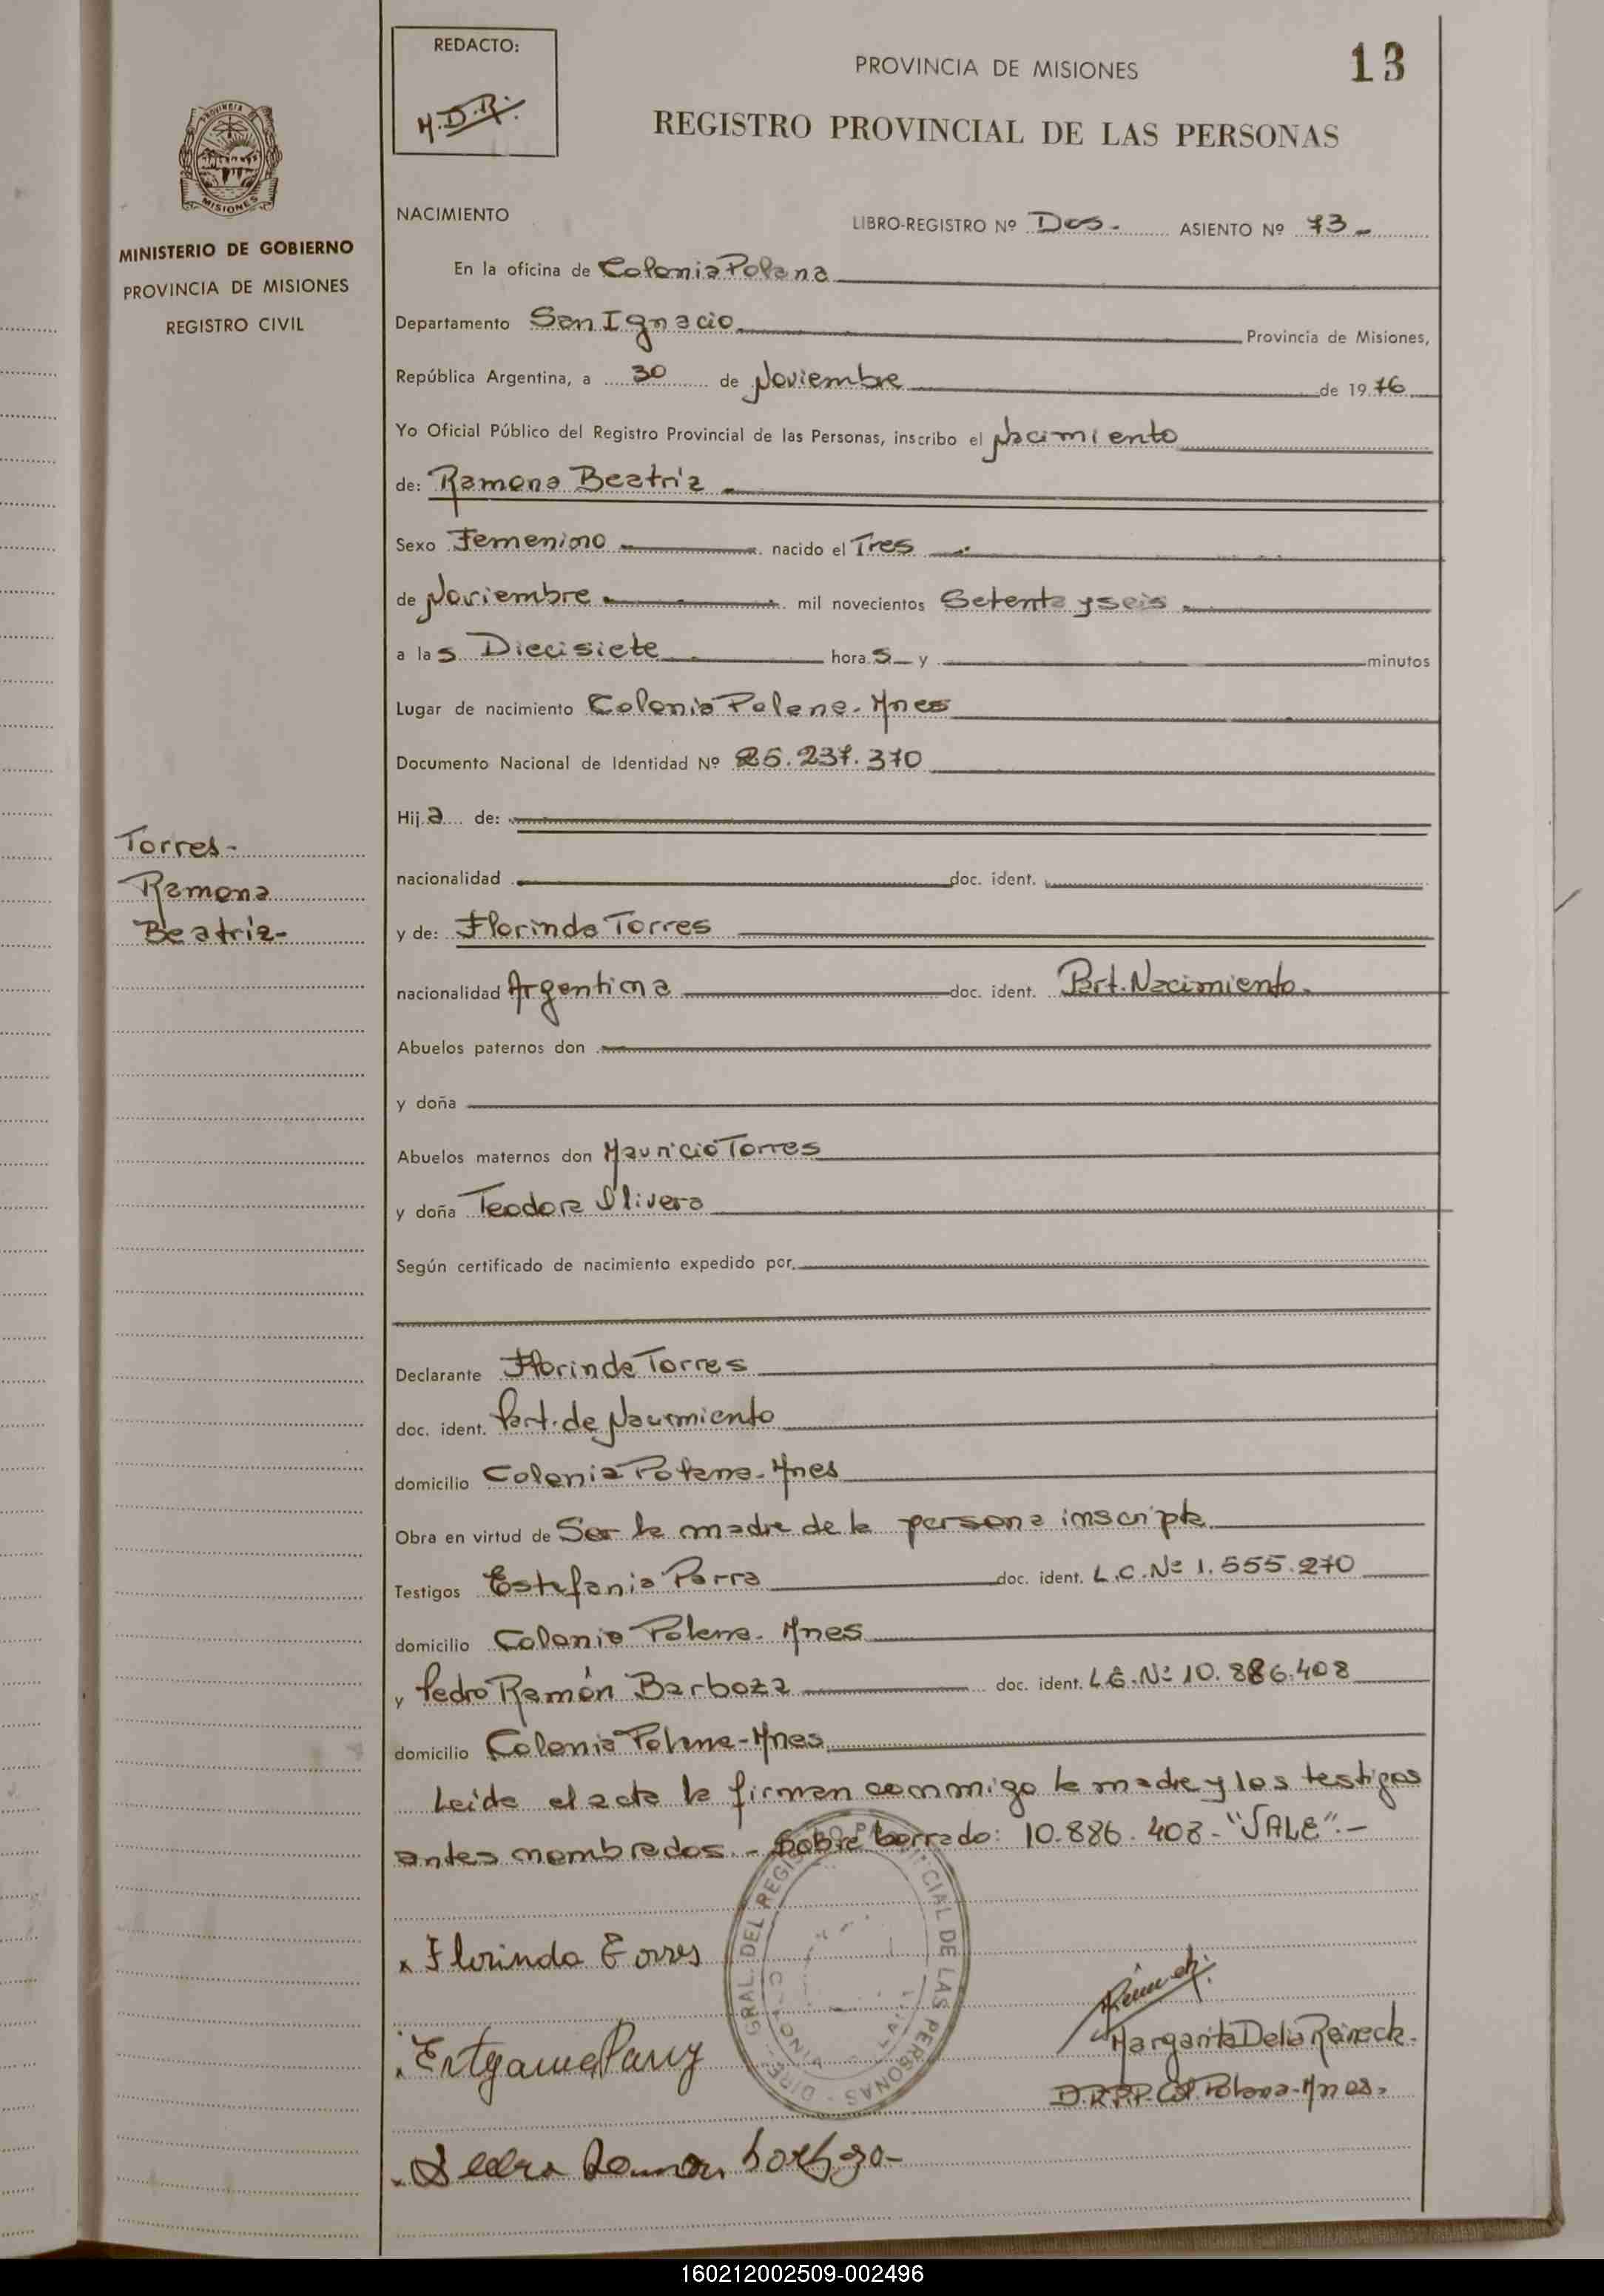 REDACTO:
M.D.R.
PROVINCIA DE MISIONES
13
REGISTRO PROVINCIAL DE LAS PERSONAS
PROVINCIA
MISIONES
MINISTERIO DE GOBIERNO
PROVINCIA DE MISIONES
REGISTRO CIVIL
NACIMIENTO
LIBRO-REGISTRO Nº Dos.- ASIENTO Nº 73-
En la oficina de Colonia Polana
Departamento San Ignacio Provincia de Misiones,
República Argentina, a 30 de Noviembre de 1976
Yo Oficial Público del Registro Provincial de las Personas, inscribo el Nacimiento
de: Ramona Beatriz
Sexo Femenino nacido el Tres
de Noviembre mil novecientos Setenta y seis
a las Diecisiete horas y minutos
Lugar de nacimiento Colonia Polana- Mnes
Documento Nacional de Identidad Nº 25.237.370
Hija de:
Torres-
Ramona
Beatriz-
nacionalidad doc. ident.
y de: Florinda Torres
nacionalidad Argentina doc. ident. Part. Nacimiento.
Abuelos paternos don
y doña
Abuelos maternos don Mauricio Torres
y doña Teodora Olivera
Según certificado de nacimiento expedido por
Declarante Florinda Torres
doc. ident. Part. de Nacimiento
domicilio Colonia Polana- Mnes
Obra en virtud de Ser la madre de la persona inscripta
Testigos Estefania Parra doc. ident. L.C. Nº 1.555.270
domicilio Colonia Polana- Mnes
y Pedro Ramón Barboza doc. ident. L.E. Nº 10.886.408
domicilio Colonia Polana-Mnes
Leida el acta la firman conmigo la madre y los testigos
antes nombrados.- Sobre borrado: 10.886.408- "VALE".-
x Florinda Torres
Pedro Ramon
Margarita Delia Reineck.
D.R.P.P. Col. Polana-Mnes.
GRAL. DEL REGISTRO PROVINCIAL DE LAS PERSONAS
160212002509-002496